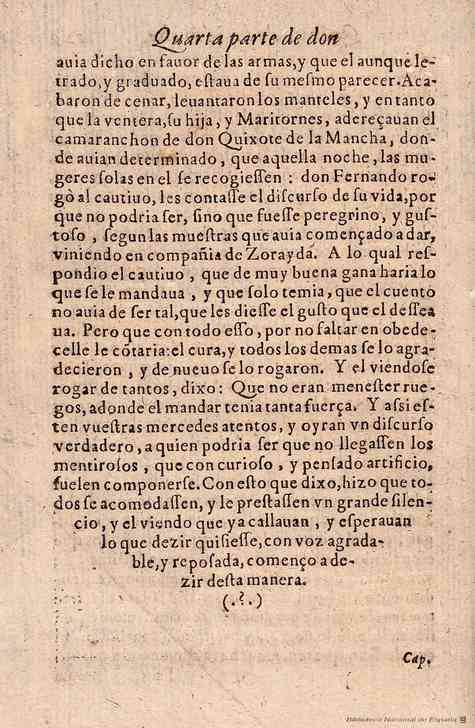 Quarta parte de don
auia dicho en fauor de las armas,y que el aunque le-
trado,y graduado, estaua de su mesmo parecer.Aca-
baron de cenar, leuantaron los manteles, y en tanto
que la ventera,su hija, y Maritornes, adereçauan el
camaranchon de don Quixote de la Mancha, don-
de auian determinado, que aquella noche, las mu-
geres solas en el se recogiessen : don Fernando ro-
gò al cautiuo, les contasse el discurso de su vida,por
que no podria ser, sino que fuesse peregrino, y gus-
toso , segun las muestras que auia começado a dar,
viniendo en compañia de Zorayda. A lo qual res-
pondio el cautiuo , que de muy buena gana haria lo
que se le mandaua , y que solo temia, que el cuento
no auia de ser tal,que les diesse el gusto que el dessea
ua. Pero que con todo esso, por no faltar en obede-
celle le cõtaria:el cura,y todos los demas se lo agra-
decieron , y de nueuo se lo rogaron. Y el viendose
rogar de tantos, dixo: Que no eran menester rue-
gos, adonde el mandar tenia tanta fuerça. Y assi es-
ten vuestras mercedes atentos, y oyran vn discurso
verdadero, a quien podria ser que no llegassen los
mentirosos , que con curioso , y pensado artificio,
suelen componerse.Con esto que dixo,hizo que to-
dos se acomodassen, y le prestassen vn grande silen-
cio, y el viendo que ya callauan , y esperauan
lo que dezir quisiesse, con voz agrada-
ble,y reposada, començo a de-
zir desta manera.
(.?.)
Cap.
Biblioteca Nacional de España